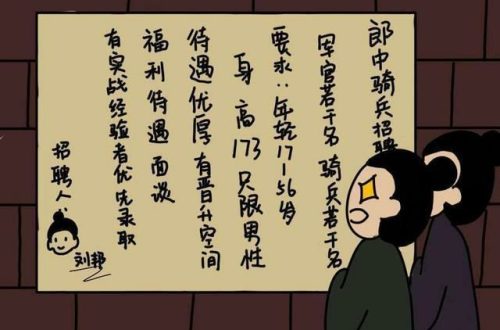 郎中骑兵招聘
军官若干名 骑兵若干名
要求:年轻17-56岁
身高173 只限男性
待遇优厚有晋升空间
福利待遇面谈
有实战经验者优先录取
招聘人:
刘邦